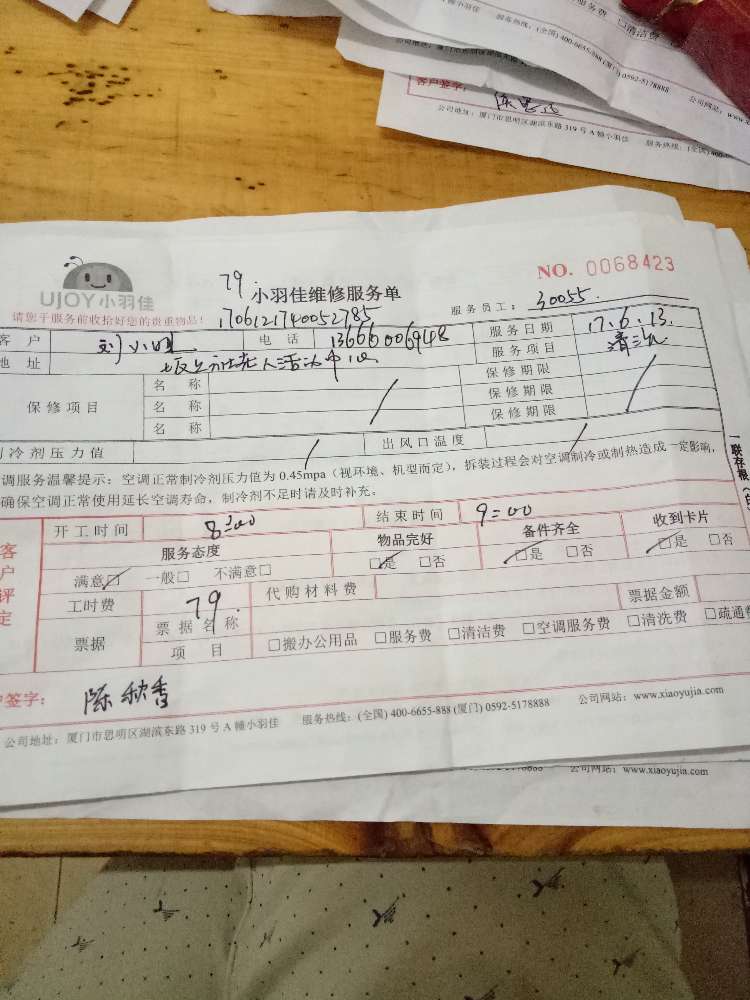 服务费 □清洁费
服务热线：(全国) 400-6655-888 (厦门) 0592-5178888 公司网站：www.x
客户签字：
公司地址：厦门市思明区湖滨东路 319 号 A 幢小羽佳 服务热线：(全国) 400-6
UJOY 小羽佳
请您于服务前收拾好您的贵重物品！
79
小羽佳维修服务单
NO. 0068423
1706121740052785
服务员工：30055
客 户 刘小明 电 话 13666006948 服务日期 17.6.13.
地 址 坂上社老人活动中心 服务项目 清洗
保修项目 名 称 保修期限
名 称 保修期限
名 称 保修期限
冷剂压力值 出风口温度
调服务温馨提示：空调正常制冷剂压力值为 0.45mpa（视环境、机型而定），拆装过程会对空调制冷或制热造成一定影响，
确保空调正常使用延长空调寿命，制冷剂不足时请及时补充。
一联存根
客户评定
开工时间 8:00 结束时间 9:00
服务态度 物品完好 备件齐全 收到卡片
满意□ 一般□ 不满意□ □是 □否 □是 □否 □是 □否
工时费 79. 代购材料费
票据 票据名称 票据金额
项 目 □搬办公用品 □服务费 □清洁费 □空调服务费 □清洗费 □疏通费
户签字：陈秋香
公司地址：厦门市思明区湖滨东路 319 号 A 幢小羽佳 服务热线：(全国) 400-6655-888 (厦门) 0592-5178888 公司网站：www.xiaoyujia.com
公司网站：www.xiaoyujia.com